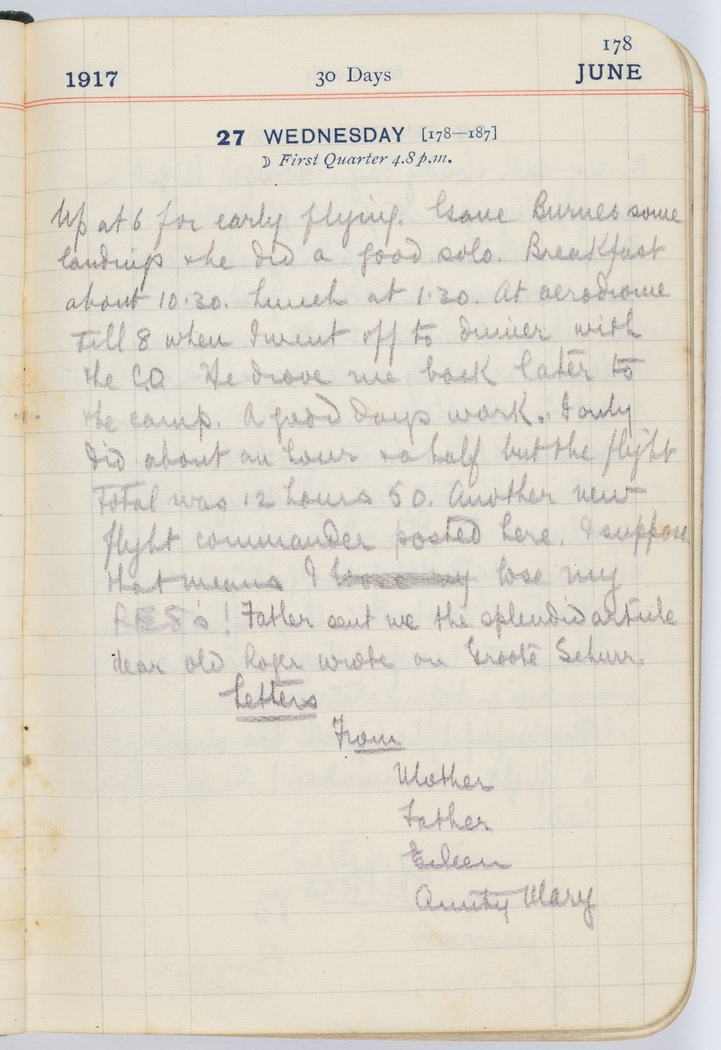 178
1917 30 Days JUNE
27 WEDNESDAY [178—187]
☽ First Quarter 4.8 p.m.
Up at 6 for early flying. Gave Burnes some
landings & he did a good solo. Breakfast
about 10.30. Lunch at 1.30. At aerodrome
till 8 when I went off to dinner with
the C.O. He drove me back later to
the camp. A good days work. I only
did about an hour & a half but the flight
total was 12 hours 50. Another new
flight commander posted here. I suppose
that means I lose my
! Father sent me the splendid article
dear old Roger wrote on Groote Schurr.
Letters
From
Mother
Father
Eileen
Aunty Mary